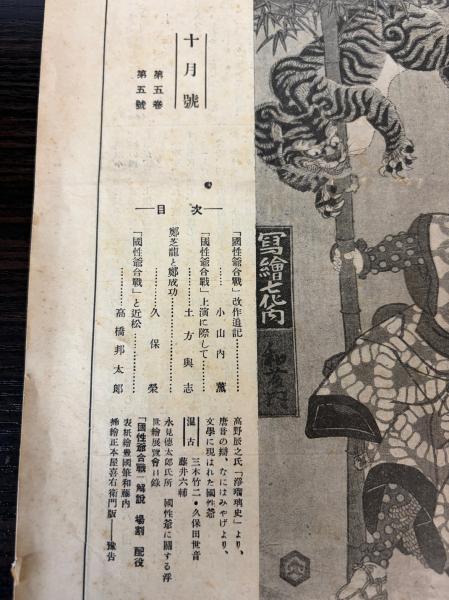 十月號
第五卷
第五號
目次
「國性爺合戰」改作追記…………
……小山内薫
「國性爺合戰」上演に際して……
…………土方與志
鄭芝龍と鄭成功
…………久保榮
「國性爺合戰」と近松…………
…………高橋邦太郎
高野辰之氏「淨瑠璃史」より、
唐音の辯、なにはみやげより、
文學に現はれた國性爺
温古 三木竹二・久保田世音
藤井六輔
永見德太郎氏所 國性爺に關する浮
世繪展覽會目錄
「國性爺合戰」解說 場割 配役
表紙繪豊國筆和藤内
挿繪正本屋喜右衛門版 豫告
寫繪七代内